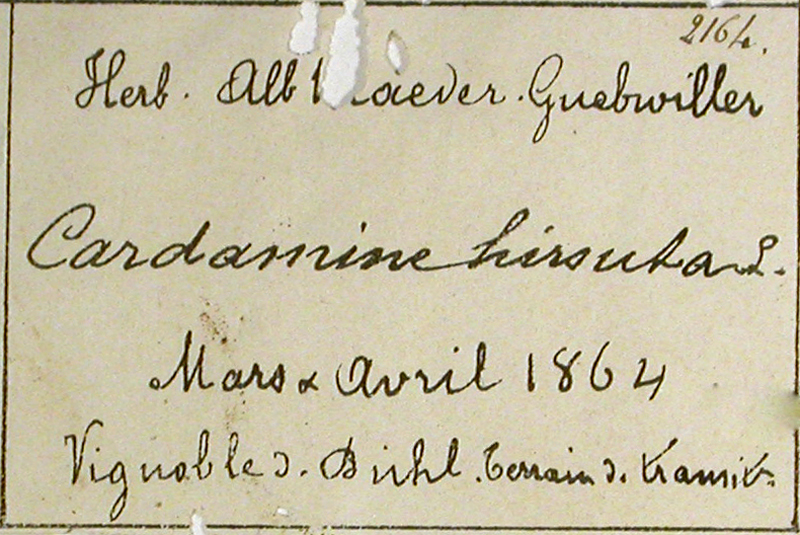 2164.
Herb. Alb Guebwiller
Cardamine hirsuta L.
Mars & Avril 1864
Vignoble d. Bühl. terrain d. transit.